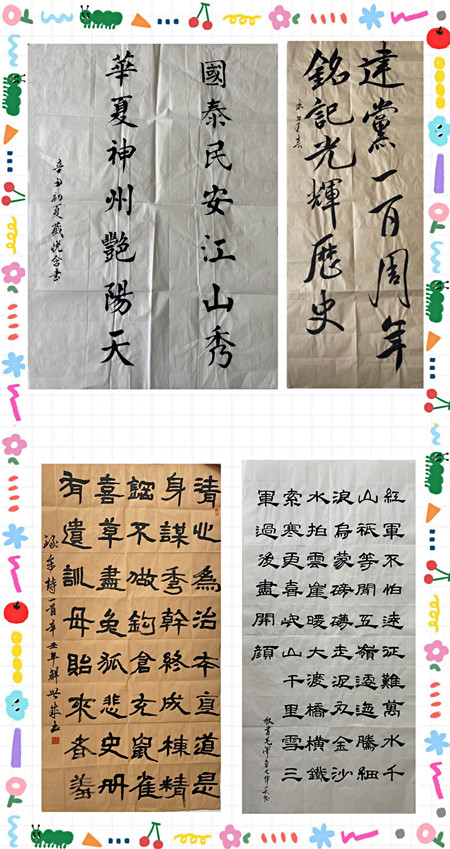 國泰民安江山秀
華夏神州艷陽天
辛丑初夏
建黨一百周年
銘記光輝歷史
清心為治本直道是
身謀秀幹終成棟精
鋼不做鈎倉充鼠雀
喜草盡兔狐悲史冊
有遺訓毋貽來者羞
詩一首辛丑年解世
紅軍不怕遠征難萬水千
山祇等閑五嶺逶迤騰細
浪烏蒙磅礴走泥丸金沙
水拍雲崖暖大渡橋橫鐵
索寒更喜岷山千里雪三
軍過後盡開顏